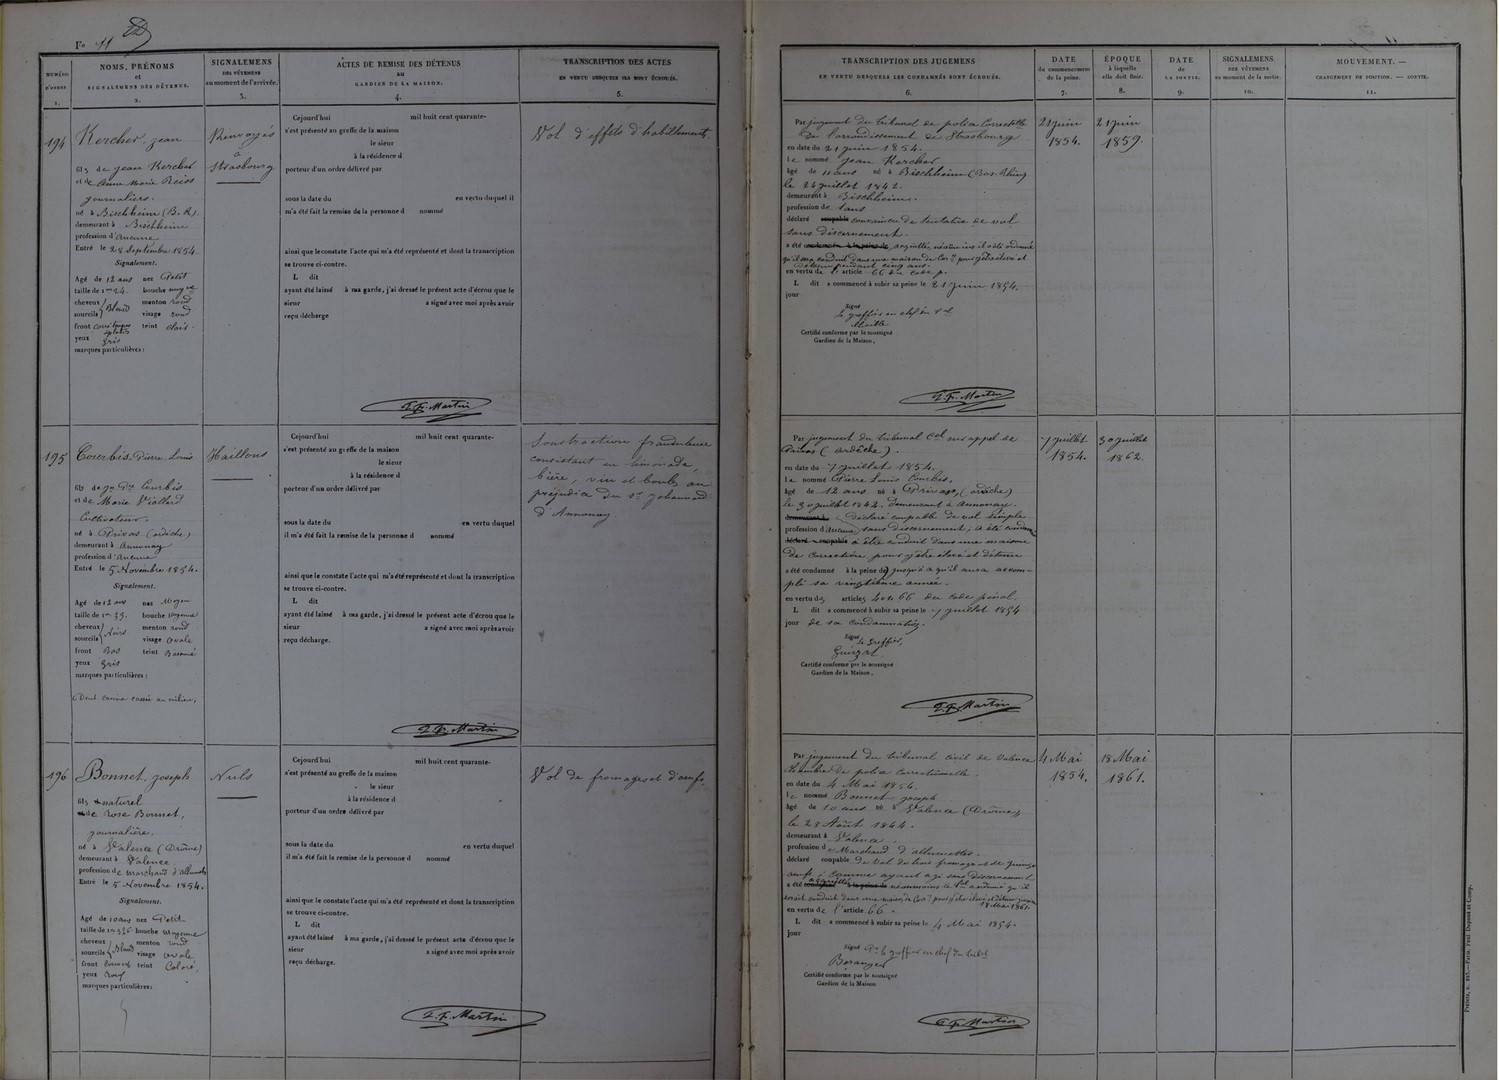 F° 11
NUMÉRO D'ORDRE 1.
NOMS, PRÉNOMS
et
SIGNALEMENS DES DÉTENUS.
2.
SIGNALEMENS
DES VÊTEMENS
au moment de l'arrivée.
3.
ACTES DE REMISE DES DÉTENUS
AU
GARDIEN DE LA MAISON.
4.
TRANSCRIPTION DES ACTES
EN VERTU DESQUELS ILS SONT ÉCROUÉS.
5.
TRANSCRIPTION DES JUGEMENS
EN VERTU DESQUELS LES CONDAMNÉS SONT ÉCROUÉS.
6.
DATE
du commencement
de la peine.
7.
ÉPOQUE
à laquelle
elle doit finir.
8.
DATE
de
LA SORTIE.
9.
SIGNALEMENS
DES VÊTEMENS
au moment de la sortie.
10.
MOUVEMENT. —
CHANGEMENT DE POSITION. — SORTIE.
11.
194
Kercher, jean
fils de jean Kercher
et de Anne Marie Reiss
journaliers.
né à Bischheim (B. R).
demeurant à Bischheim
profession d'Aucune
Entré le 28 Septembre 1854.
Signalement.
Agé de 12 ans nez Petit
taille de 1m 24. bouche moyne
cheveux menton rond
sourcils Blond visage rond
front teint clair.
yeux gris
marques particulières :
Renvoyés
à
Strasbourg
Cejourd'hui mil huit cent quarante-
s'est présenté au greffe de la maison
le sieur
à la résidence d
porteur d'un ordre délivré par
sous la date du en vertu duquel il
m'a été fait la remise de la personne d nommé
ainsi que le constate l'acte qui m'a été représenté et dont la transcription
se trouve ci-contre.
L dit
ayant été laissé à ma garde, j'ai dressé le présent acte d'écrou que le
sieur a signé avec moi après avoir
reçu décharge
J. F. Martin
Vol d'effets d'habillements
Par jugement du tribunal de police Correctlle
De l'arrondissement de Strasbourg
en date du 21 juin 1854.
le nommé jean Kercher
âgé de 11 ans né à Bischheim (Bas-Rhin)
le 24 juillet 1842.
demeurant à Bischheim.
profession de sans
déclaré coupable convaincu de tentative de vol
sans discernement.
a été condamné à la peine de acquitté, néanmoins il a été ordonné
qu'il sera conduit dans une maison de Cor.on pour y être élevé et
détenu pendant cinq ans.
en vertu de l' article 66 du Code p.
L dit a commencé à subir sa peine le 21 juin 1854.
jour
Signé
le greffier en chef
Certifié conforme par le soussigné
Gardien de la Maison,
J. F. Martin
21 juin
1854.
21 juin
1859.
195
Courbis, Pierre Louis
fils de Courbis
et de Marie Viallard
Cultivateur.
né à Privas (ardèche)
demeurant à Annonay
profession d'Aucune
Entré le 5 Novembre 1854.
Signalement.
Agé de 12 ans nez Moyen
taille de 1m 35. bouche moyenne
cheveux menton rond
sourcils Noirs visage ovale
front Bas teint Basané
yeux gris
marques particulières :
Dent canine cassée au milieu,
Haillons
Cejourd'hui mil huit cent quarante-
s'est présenté au greffe de la maison
le sieur
à la résidence d
porteur d'un ordre délivré par
sous la date du en vertu duquel
il m'a été fait la remise de la personne d nommé
ainsi que le constate l'acte qui m'a été représenté et dont la transcription
se trouve ci-contre.
L dit
ayant été laissé à ma garde, j'ai dressé le présent acte d'écrou que le
sieur a signé avec moi après avoir
reçu décharge.
J. F. Martin
Soustraction frauduleuse
consistant en limonade,
bière, vin et boules au
préjudice du Sr johannard
d'Annonay.
Par jugement du tribunal Cel sur appel de
Privas (ardèche).
en date du 7 juillet 1854.
le nommé Pierre Louis Courbis,
âgé de 12 ans né à Privas, (ardèche)
le 30 juillet 1842. Demeurant à Annonay.
demeurant à Déclaré coupable de vol simple
profession d'Aucune sans discernement, a été condamné
déclaré coupable à être conduit dans une maison
de correction pour y être élevé et détenu
a été condamné à la peine de jusqu'à ce qu'il aura accom-
pli sa vingtième année.
en vertu des articles 401 66 du Code pénal.
L dit a commencé à subir sa peine le 7 juillet 1854
jour de sa condamnation.
Signé
le greffier,
Certifié conforme par le soussigné
Gardien de la Maison,
J. F. Martin
7 juillet
1854.
30 juillet
1862.
196
Bonnet, joseph
fils naturel
de Rose Bonnet,
journalière.
né à Valence (Drôme)
demeurant à Valence
profession de marchand d'allumettes
Entré le 5 Novembre 1854.
Signalement.
Agé de 10 ans nez Petit
taille de 1m 26 bouche moyenne
cheveux menton rond
sourcils Blond visage ovale
front teint Coloré,
yeux
marques particulières :
Nuls
Cejourd'hui mil huit cent quarante-
s'est présenté au greffe de la maison
le sieur
à la résidence d
porteur d'un ordre délivré par
sous la date du en vertu duquel
il m'a été fait la remise de la personne d nommé
ainsi que le constate l'acte qui m'a été représenté et dont la transcription
se trouve ci-contre.
L dit
ayant été laissé à ma garde, j'ai dressé le présent acte d'écrou que le
sieur a signé avec moi après avoir
reçu décharge.
J. F. Martin
Vol de fromages et d'oeufs.
Par jugement du tribunal civil de Valence
Chambre de police correctionnelle.
en date du 4 Mai 1854.
le nommé Bonnet joseph
âgé de 10 ans né à Valence (Drôme)
le 28 Août 1844.
demeurant à Valence.
profession de Marchand d'allumettes.
déclaré coupable de vol de trois fromages et de quinze
oeufs ; comme ayant agi sans discernement
a été condamné à la peine de acquitté néanmoins le tal a ordonné qu'il
serait conduit dans une maison de Cor.on pour y être élevé et détenu jusqu'au
18 Mai 1861.
en vertu de l' article 66.
L dit a commencé à subir sa peine le 4 Mai 1854.
jour
Signé
le greffier en chef du tribal
Beranger
Certifié conforme par le soussigné
Gardien de la Maison
J. F. Martin
4 Mai
1854.
18 Mai
1861.